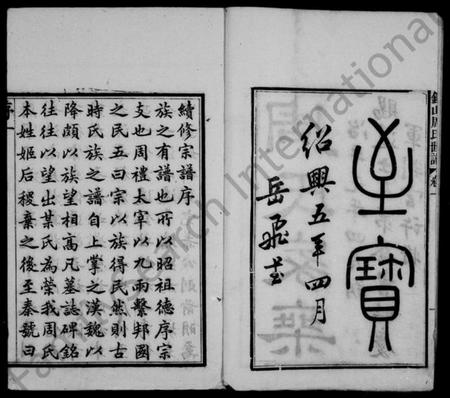 至寶
紹興五年四月
岳飛書
錢山周氏世譜 卷一
續修宗譜序
族之有譜也所以昭祖德序宗
支也周禮太宰以九兩繫邦國
之民五曰宗以族得民然則古
時氏族之譜自上掌之漢魏以
降頗以族望相高凡墓誌碑銘
往往以望出某氏為榮我周氏
本姓姬后稷棄之後至秦號曰
序一
Research International